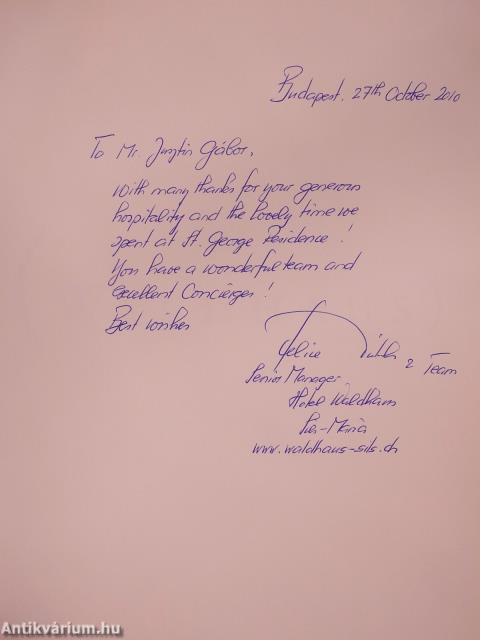 Budapest, 27th October 2010
To Mr. Jusztin Gábor,
With many thanks for your generous
hospitality and the lovely time we
spent at St. George Residence!
You have a wonderful team and
excellent Concièrges!
Best wishes
Felix & Team
Senior Manager
Hotel Waldhaus
Sils-Maria
www.waldhaus-sils.ch
Antikvárium.hu